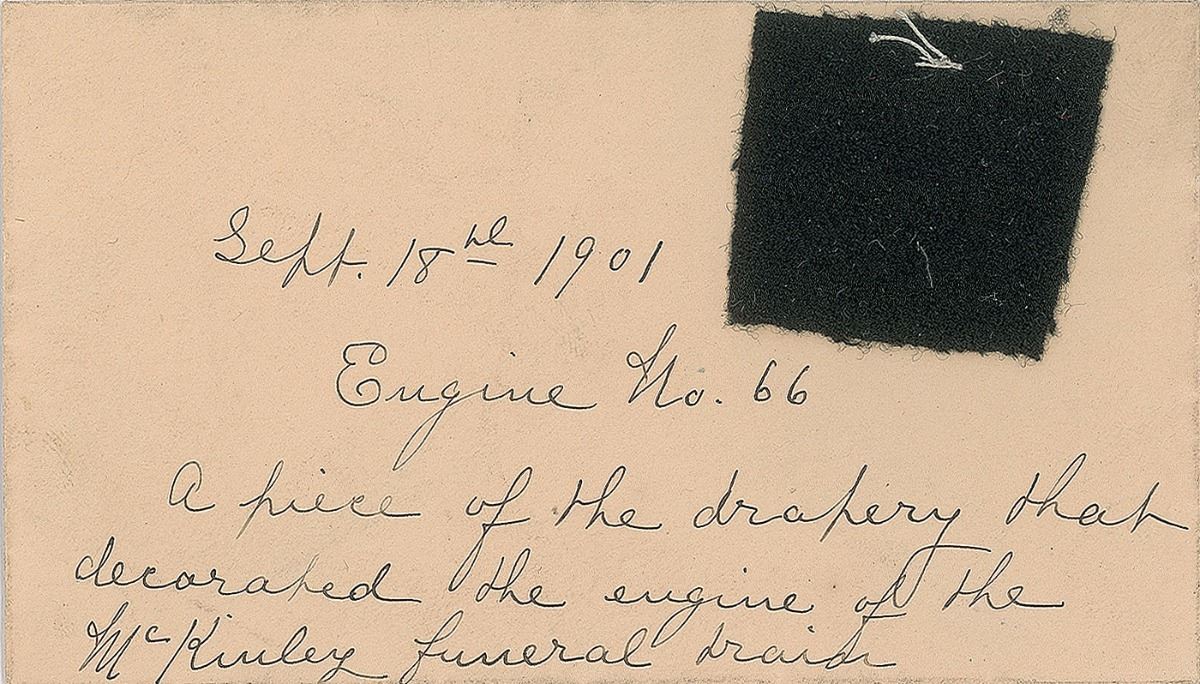 Sept. 18th 1901
Engine No. 66
A piece of the drapery that
decorated the engine of the
McKinley funeral train